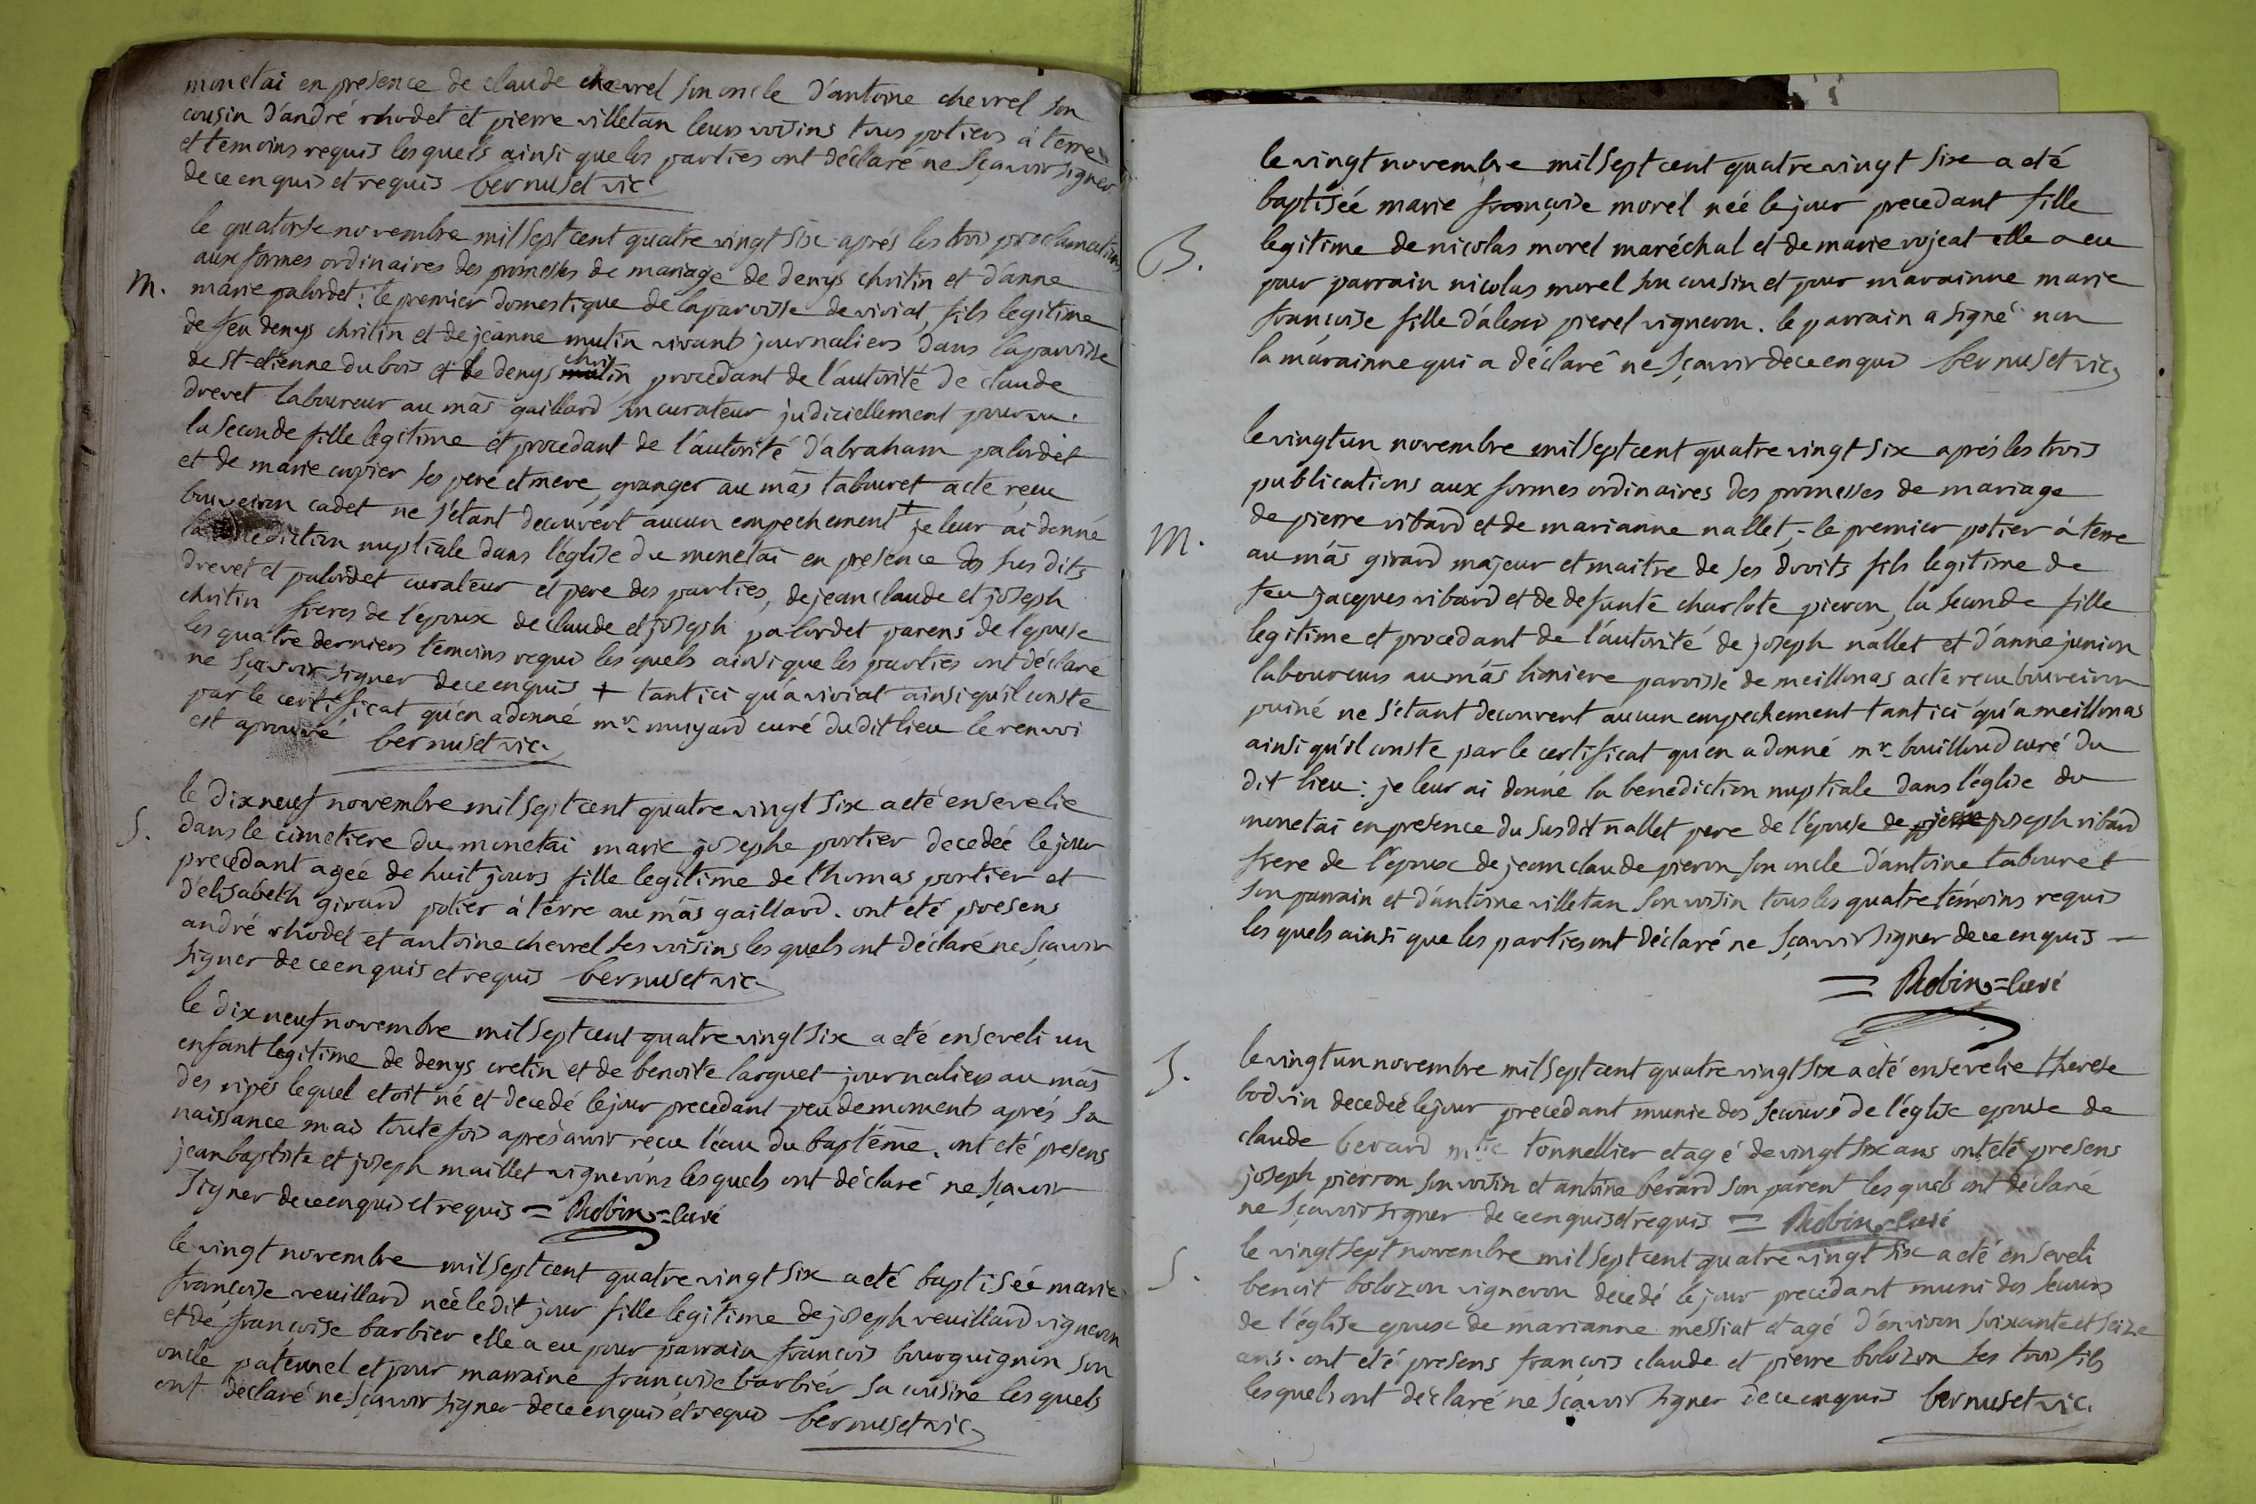 monetai en presence de claude chevrel son oncle d'antoine chevrel son
cousin d'andré rhodet et pierre villetan leurs voisins tous potiers à terre
et temoins requis les quels ainsi que les parties ont déclaré ne sçavoir signer
de ce enquis et requis bernuset vic.
le quatorse novembre mil sept cent quatre vingt six aprés les trois proclamations
aux formes ordinaires des promesses de mariage de denys chritin et d'anne
M. marie palordet: le premier domestique de la paroisse de viriat, fils legitime
de feu denys chritin et de jeanne mutin vivants journaliers dans la paroisse
de st-etienne du bois et de denys chritin procedant de l'autorité de claude
drevet laboureur au mas gaillard son curateur judiciellement pourvu.
la seconde fille legitime et procedant de l'autorité d'abraham palordet
et de marie cuvier ses pere et mere, granger au mas tabouret acte reçu
bouveiron cadet ne s'etant decouvert aucun empechement + je leur ai donné
la benediction nuptiale dans l'église du monetai en presence des sus dits
drevet et palordet curateur et pere des parties, de jean claude et joseph
chritin freres de l'epoux de claude et joseph palordet parens de l'epouse
les quatre derniers temoins requis les quels ainsi que les parties ont déclaré
ne sçavoir signer de ce enquis + tant ici qu'a viriat ainsi qu'il conste
par le certificat qu'en a donné mr. curé du dit lieu le renvoi
est aprouvé bernuset vic.
le dix neuf novembre mil sept cent quatre vingt six a eté ensevelie
S. dans le cimetiere du monetai marie josephe portier decedeé le jour
precedant ageé de huit jours fille legitime de thomas portier et
d'elisabeth girard potier à terre au mas gaillard. ont été presens
andré rhodet et antoine chevrel ses voisins les quels ont déclaré ne sçavoir
signer de ce enquis et requis bernuset vic.
le dix neuf novembre mil sept cent quatre vingt six a eté enseveli un
enfant legitime de denys cretin et de benoite larguet journaliers au mas
des ripes lequel etoit né et decedé le jour precedant peu de moments aprés sa
naissance mais toute fois aprés avoir reçu l'eau du baptême. ont eté presens
jean baptiste et joseph maillet vignerons les quels ont déclaré ne sçavoir
signer de ce enquis et requis = Robin = Curé
le vingt novembre mil sept cent quatre vingt six a eté baptiseé marie
françoise veuillard neé le dit jour fille legitime de joseph veuillard vigneron
et de francoise barbier elle a eu pour parrain francois bourguignon son
oncle paternel et pour marraine francoise barbiér sa cousine les quels
ont déclaré ne sçavoir signer de ce enquis et requis bernuset vic.
le vingt novembre mil sept cent quatre vingt six a eté
baptiseé marie françoise morel neé le jour precedant fille
B. legitime de nicolas morel maréchal et de marie rojeat elle a eu
pour parrain nicolas morel son cousin et pour marainne marie
françoise fille d'alexis pierel vigneron. le parrain a signé non
la marainne qui a déclaré ne sçavoir de ce enquis bernuset vic.
le vingt un novembre mil sept cent quatre vingt six aprés les trois
publications aux formes ordinaires des promesses de mariage
M. de pierre ribard et de marianne nallet, le premier potier à terre
au mas girard majeur et maitre de ses droits fils legitime de
feu jacques ribard et de defunte charlote pieron, la seconde fille
legitime et procedant de l'autorité de joseph nallet et d'anne junion
laboureurs au mas paroisse de meillonas acte recu bouveiron
puiné ne s'etant decouvert aucun empechement tant ici qu'a meillonas
ainsi qu'il conste par le certificat qu'en a donné mr. bouilloud curé du
dit lieu: je leur ai donné la benediction nuptiale dans l'église du
monetai en presence du susdit nallet pere de l'épouse de pierre joseph ribard
frere de l'epoux de jean claude pieron son oncle d'antoine tabouret
son parrain et d'antoine villetan son voisin tous les quatre témoins requis
les quels ainsi que les parties ont déclaré ne sçavoir signer de ce enquis —
= Robin = Curé
S. le vingt un novembre mil sept cent quatre vingt six a été ensevelie therese
bodvin decedeé le jour precedant munie des secours de l'église epouse de
claude berard mtre tonnellier et agé de vingt six ans ont eté presens
joseph pierron son voisin et antoine berard son parent les quels ont déclaré
ne sçavoir signer de ce enquis et requis = Robin = Curé
S. le vingt sept novembre mil sept cent quatre vingt six a eté enseveli
benoit bolozon vigneron decedé le jour precedant muni des secours
de l'église epoux de marianne messiat et agé d'environ soixante et seize
ans. ont eté presens françois claude et pierre bolozon ses trois fils
les quels ont déclaré ne sçavoir signer de ce enquis bernuset vic.